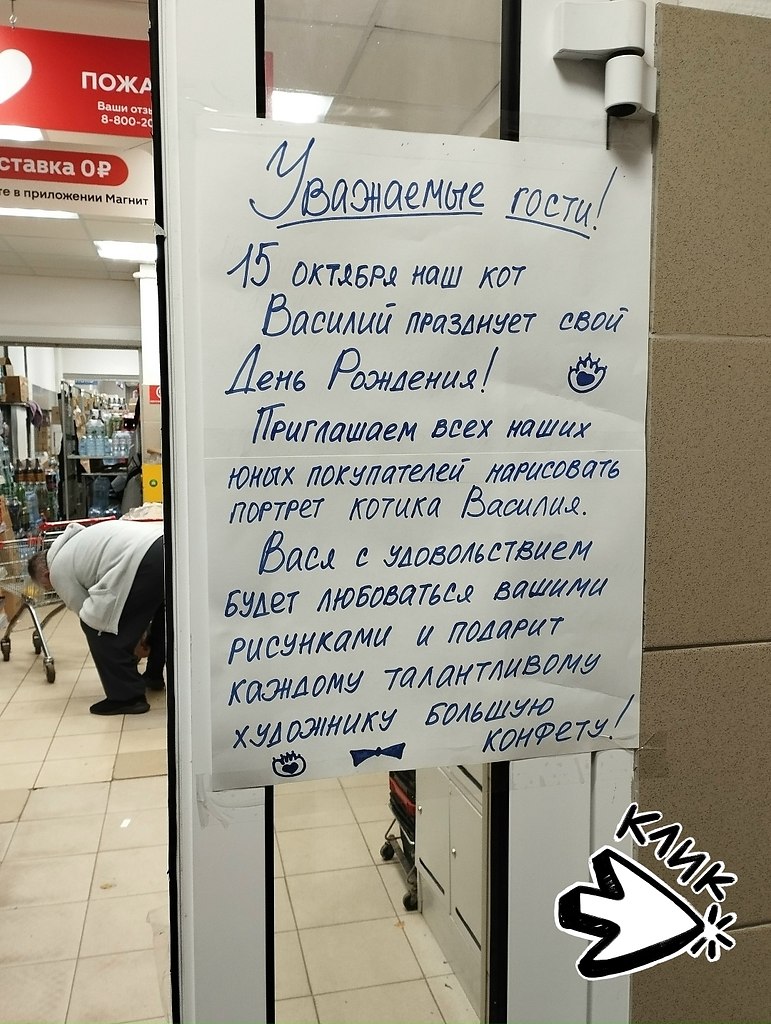 ПОЖА
Ваши отзы
8-800-20
ставка 0₽
те в приложении Магнит
Уважаемые гости!
15 октября наш кот
Василий празднует свой
День Рождения!
Приглашаем всех наших
юных покупателей нарисовать
портрет котика Василия.
Вася с удовольствием
будет любоваться вашими
рисунками и подарит
каждому талантливому
художнику большую
конфету!
КЛИК